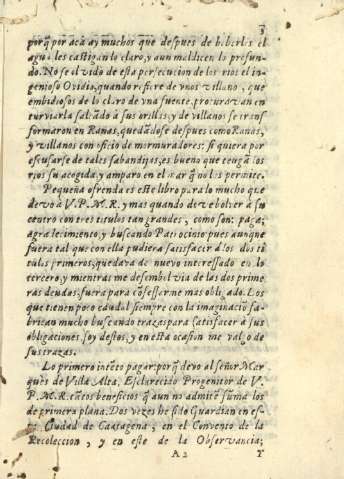 3
porq̃ por acà ay muchos que despues de beberles el
agua les castigan lo claro, y aun maldicen lo profun-
do. No se olvidò de esta persecucion de los rios el in-
genioso Ovidio, quando refiere de vnos villanos, que
embidiosos de lo claro de vna fuente, procuravan en
turviarla saltãdo à sus orillas; y de villanos se trans
formaron en Ranas, quedãdose despues como Ranas,
y villanos con oficio de murmuradores: si quiera por
escusarse de tales sabandijas, es bueno que tengã los
rios su acogida, y amparo en el mar q̃ no les permite.
Pequeña ofrenda es este libro para lo mucho que
devo à V. P. M. R. y mas quando deve bolver à su
centro con tres titulos tan grandes, como son: paga,
agradecimiento, y buscando Patrocinio: pues aunque
fuera tal que con ella pudiera satisfacer à los dos ti
tulos primeros, quedara de nuevo interessado en lo
tercero, y mientras me desembolvia de las dos prime
ras deudas, fuera para cõfessarme mas obligado. Los
que tienen poco caudal siempre con la imaginaciõ fa-
brican mucho buscando trazas para satisfacer à sus
obligaciones: soy destos, y en està ocasion me valgo de
sus trazas.
Lo primero inẽto pagar: porq̃ devo al señor Mar
quès de Vista Alea, Esclarecido Progenitor de V.
P. M. R. tãtos beneficios q̃ aun no admitẽ suma los
de primera plana. Dos vezes he sido Guardian en es-
ta Ciudad de Cartagena; en el Convento de la
Recoleccion, y en este de la Observancia;
A 2 Y